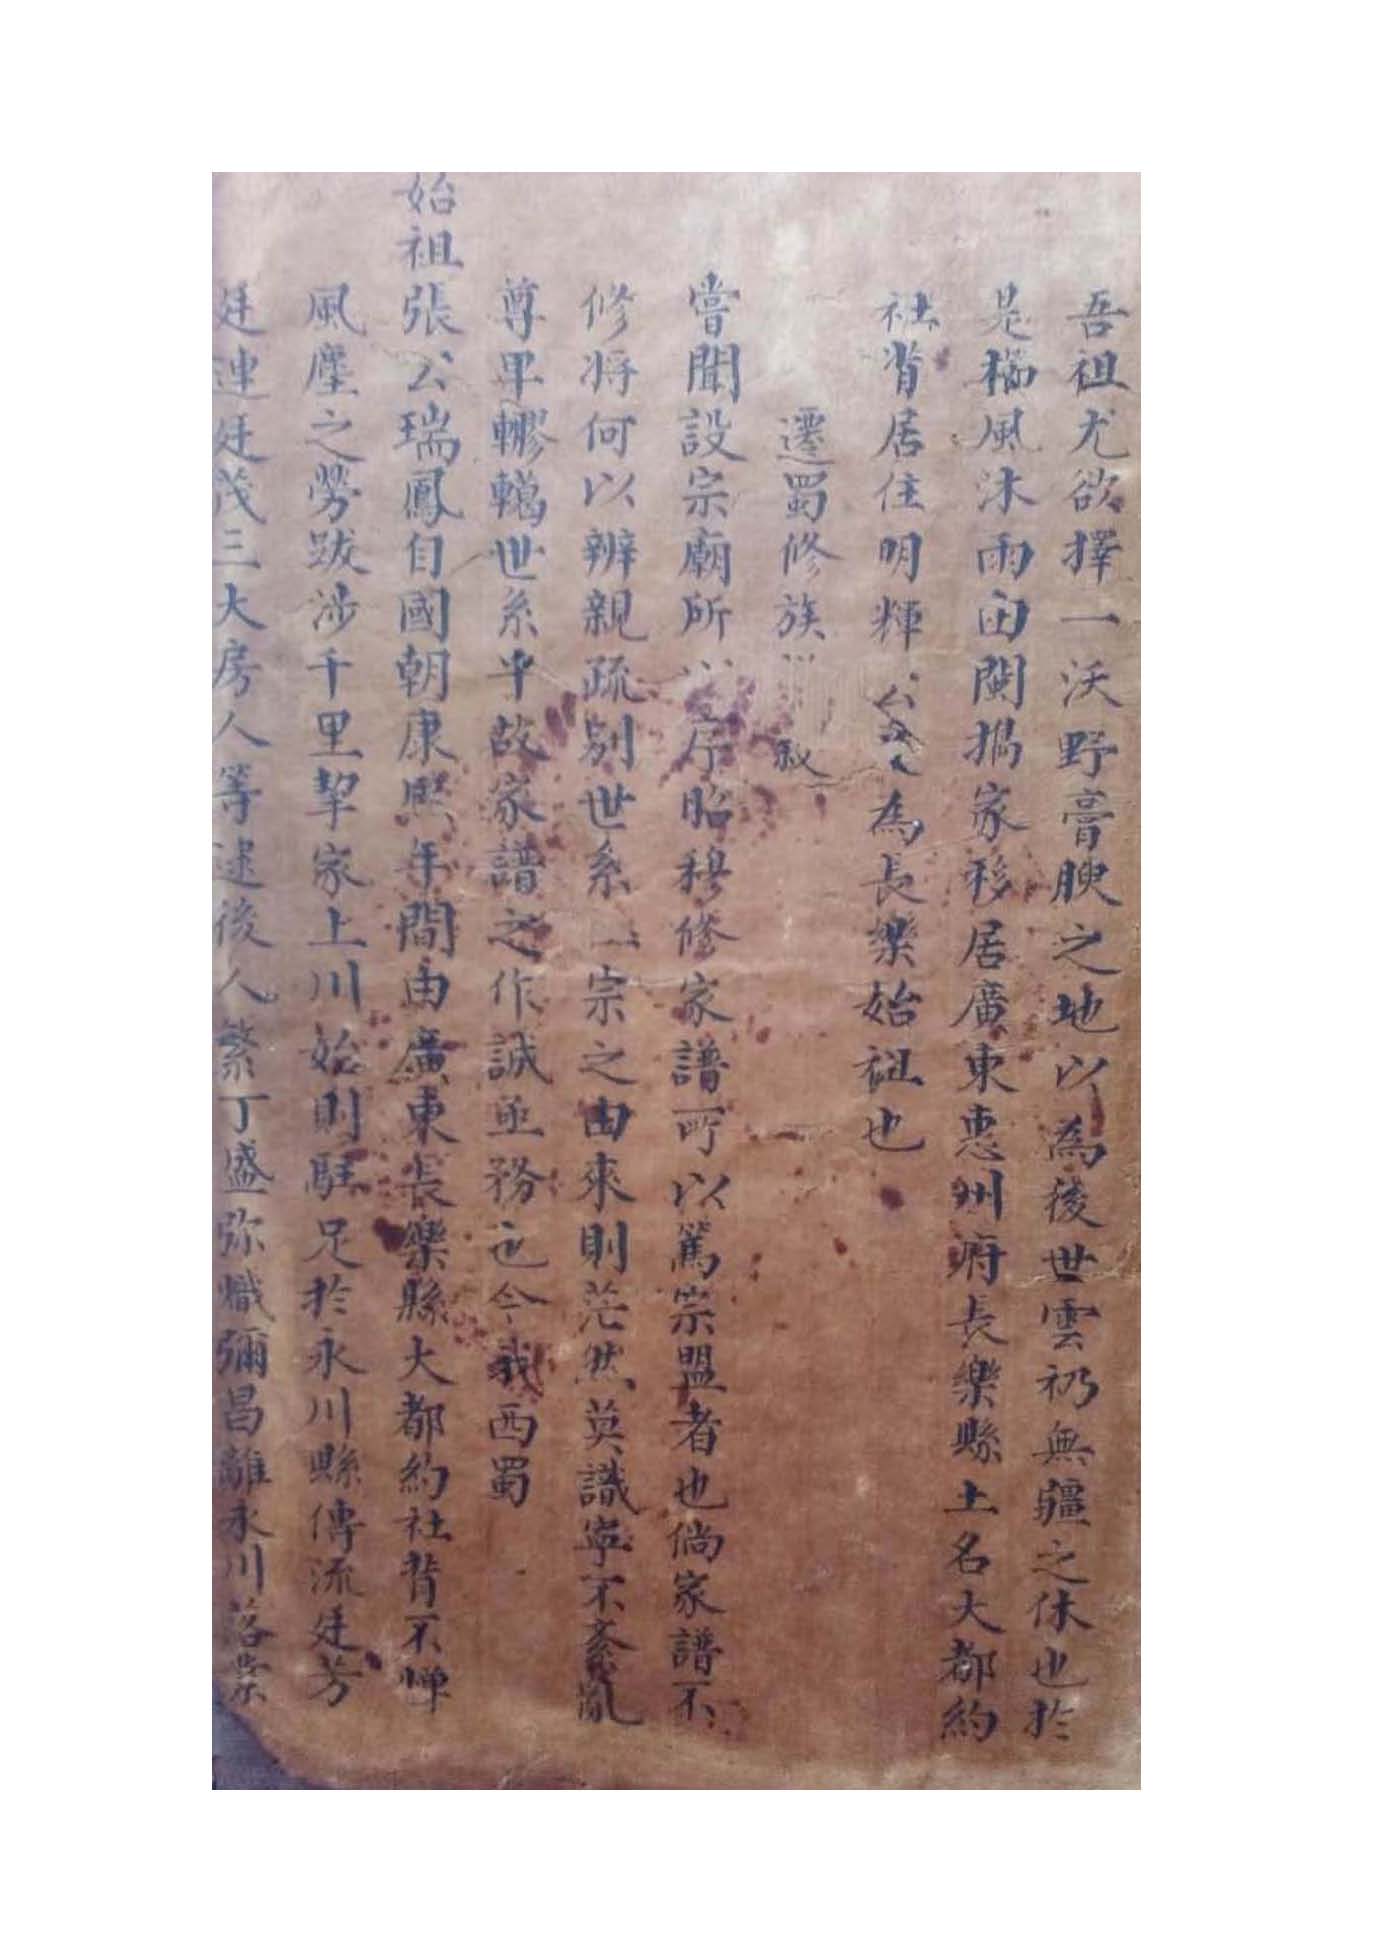 吾祖尤欲擇一沃野膏腴之地以為後世雲礽無疆之休也於
是櫛風沐雨由閩搗家移居廣東惠州府長樂縣土名大都約
社背居住明輝公為長樂始祖也
遷蜀修族叙
嘗聞設宗廟所以序昭穆修家譜所以篤宗盟者也倘家譜不
修將何以辦親疏別世系一宗之由來則茫然莫識寧不紊亂
尊卑轇轕世系乎故家譜之作誠亟務也今我西蜀
始祖張公瑞鳳自國朝康熙年間由廣東長樂縣大都約社背不憚
風塵之勞跋涉千里挈家上川始則駐足於永川縣傳流廷芳
廷連廷茂三大房人等逮後人繁丁盛弥熾彌昌離永川